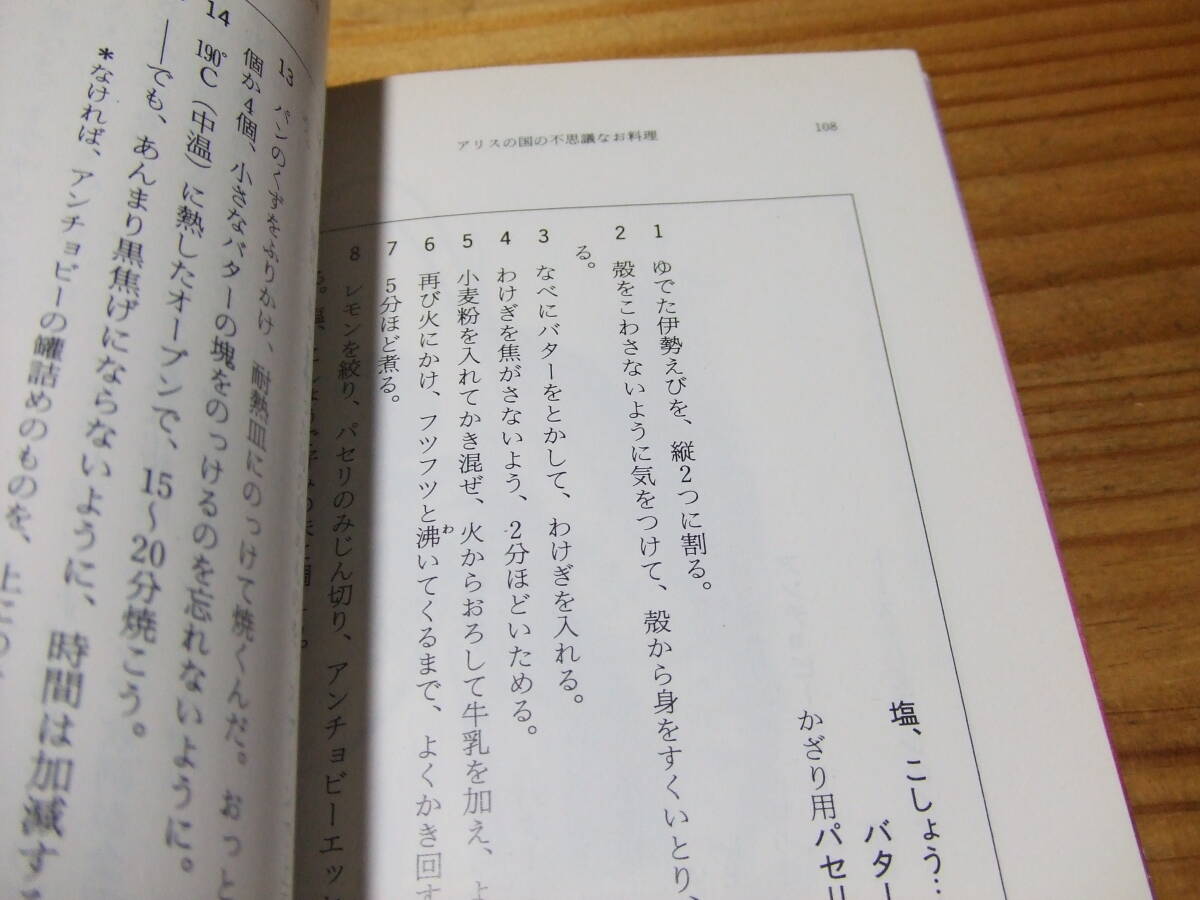 アリスの国の不思議なお料理
108
塩、こしょう…
バター
かざり用パセリ
1 ゆでた伊勢えびを、縦2つに割る。
2 殻をこわさないように気をつけて、殻から身をすくいとり、
る。
3 なべにバターをとかして、わけぎを入れる。
4 わけぎを焦がさないよう、2分ほどいためる。
5 小麦粉を入れてかき混ぜ、火からおろして牛乳を加え、よ
6 再び火にかけ、フツフツと沸いてくるまで、よくかき回す
わ
7 5分ほど煮る。
8 レモンを絞り、パセリのみじん切り、アンチョビーエッ
13 パンのくずをふりかけ、耐熱皿にのっけて焼くんだ。おっと
個か4個、小さなバターの塊をのっけるのを忘れないように。
14 190℃（中温）に熱したオーブンで、15〜20分焼こう。
――でも、あんまり黒焦げにならないように、時間は加減する
＊なければ、アンチョビーの罐詰めのものを、上にの